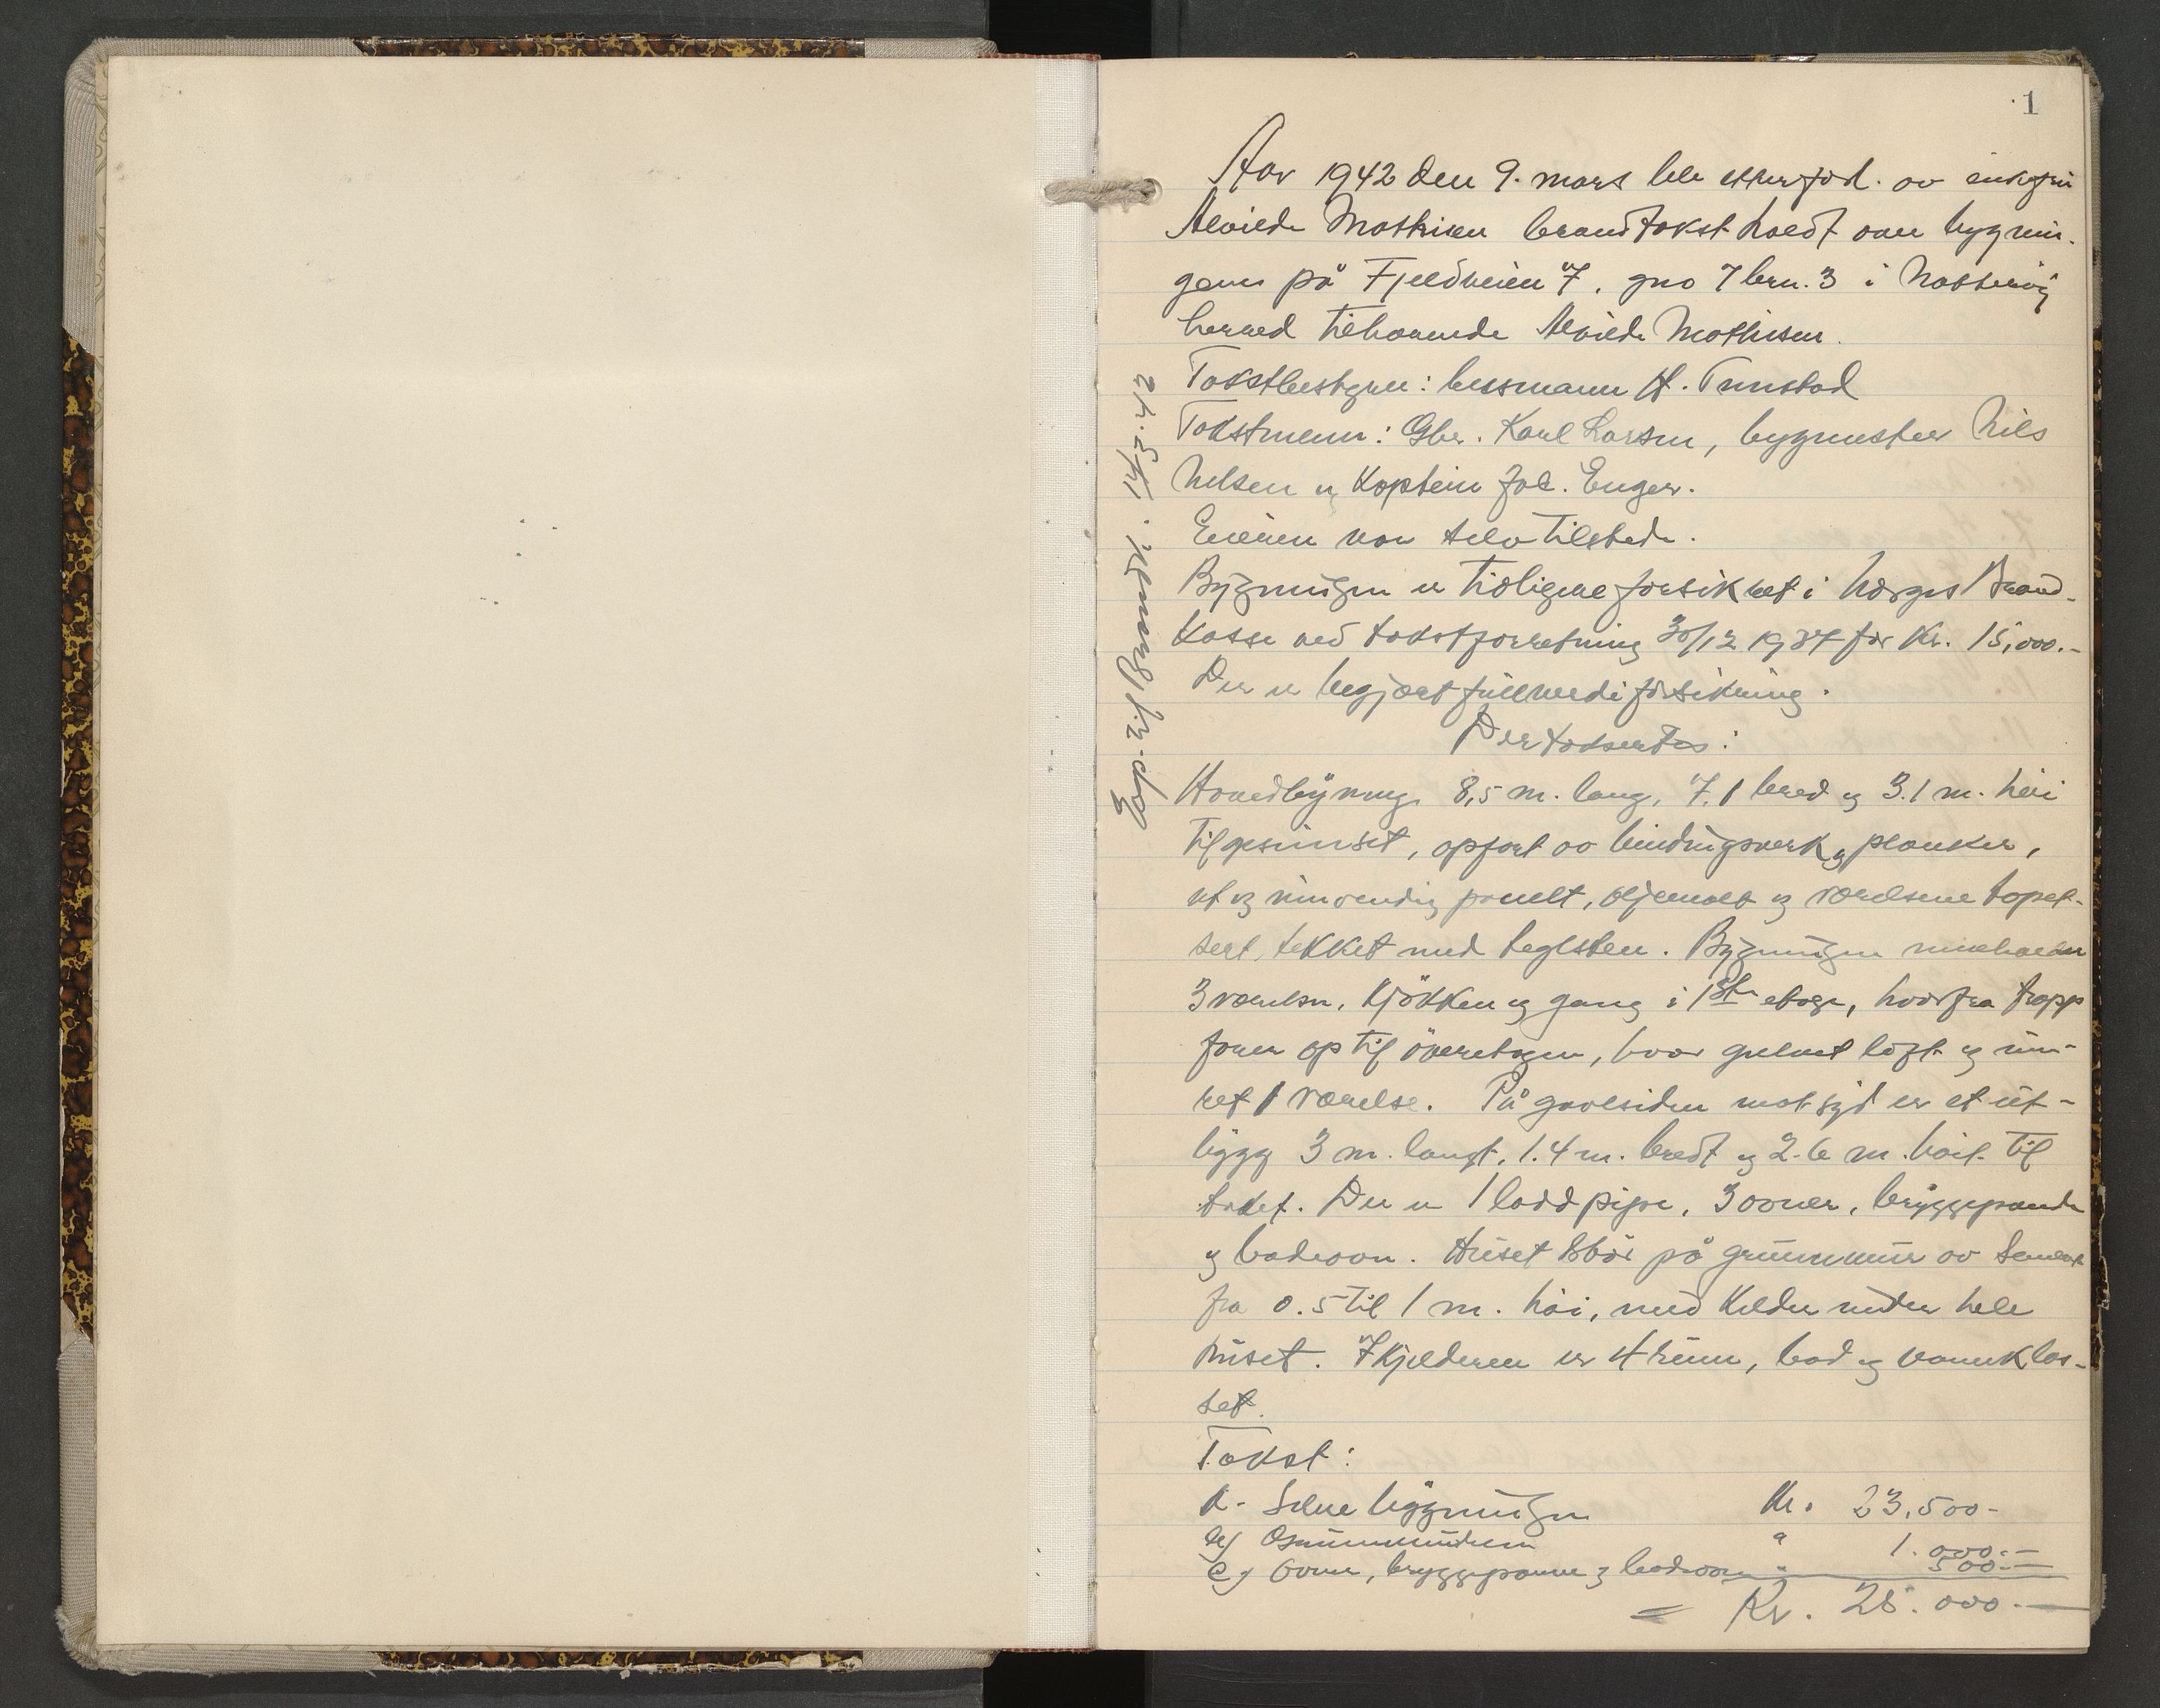 1
Aar 1942 den 9. mars ble etter forl. av enkefru
Alvilde Mathisen brandtakst holdt over bygnin-
gene på Fjeldveien 7, gno 7 brn. 3 i Nøtterøy
herred tilhørende Alvilde Mathisen.
Takstbestyrer: lensmann H. Tunstad
Takstmenn: Gbr. Karl Larsen, bygmester Nils
Nelsen og Kaptein Jac. Enger.
Eieren var selv tilstede.
Bygningen er tidligere forsikret i Norges Brand-
kasse ved takstforretning 30/12 1937 for Kr. 15,000.-
Der er begjært fullverdiforsikring.
Der taksertes:
Hovedbygning 8,5 m. lang, 7,1 bred og 3.1 m. høi
til gesimset, opført av bindingsverk og planker,
ut og innvendig panelt, oljemalt og værelsene tapet-
sert, tekket med teglsten. Bygningen inneholder
3 værelser, kjøkken og gang i 1ste etage, hvorfra trapp
fører op til øveretagen, hvor gulvet loft og inn-
ret 1 værelse. På gavlsiden mot syd er et ut-
bygg 3 m. langt, 1.4 m. bredt og 2.6 m. høit til
taket. Der er 1 lødd pipe, 3 ovner, bryggepande
og badeovn. Huset står på grunnmur av sement
fra 0.5 til 1 m. høi, med kjelder under hele
huset. I kjelderen er 4 rum, bad og vannklos-
set.
Takst:
A. Selve bygningen Kr. 23,500-
b) Grunnmuren " 1.000.-
c) Ovner, bryggepanne og badeovn " 500.-
= Kr. 25.000.-
Eksp. til Brannd. 14/3.42